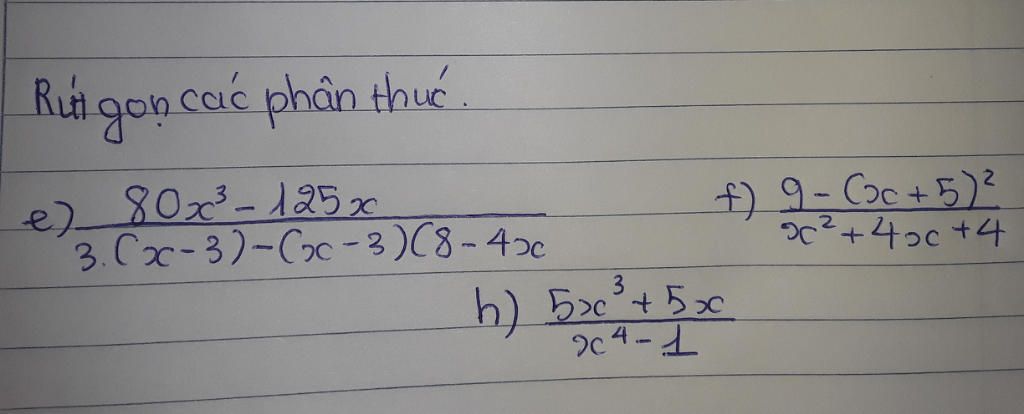 Rút gọn các phân thức.
e) \frac{80x^3 - 125x}{3.(x-3)-(x-3)(8-4x} f) \frac{9-(x+5)^2}{x^2+4x+4}
h) \frac{5x^3+5x}{x^4-1}